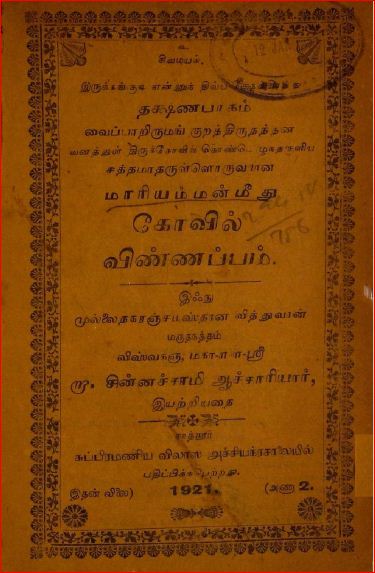 உ
சிவமயம்.
இருக்கங்குடி என்னுந் திவ்ய
தக்ஷணபாகம்
வைப்பாறிருமங் குறத்திருத்தன
வனத்துள் திருக்கோவில் கொண்டெ
சத்தமாதருள்ளொருவளான
மாரியம்மன்மீது
கோவில்
விண்ணப்பம்.
இஃது
முல்லைநகரஞ்சமஸ்தான வித்துவான்
மருதகத்தம்
விஸ்வகுரு, மகா-ள-ள-ஸ்ரீ
சின்னச்சாமி ஆச்சாரியார்,
இயற்றியதை
சாத்தூர்
சுப்பிரமணிய விலாஸ அச்சியந்திரசாலையில்
பதிப்பிக்கபெற்றது.
இதன் விலை) 1921. (அணா 2.